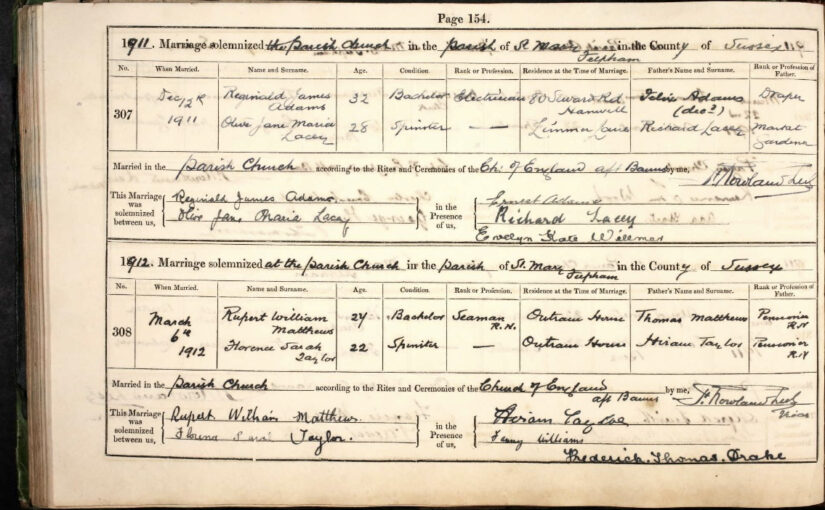 Page 154.
1911. Marriage solemnized at the Parish Church in the Parish of St Mary Felpham in the County of Sussex
No. When Married. Name and Surname. Age. Condition. Rank or Profession. Residence at the Time of Marriage. Father's Name and Surname. Rank or Profession of Father.
307 Dec 12th 1911 Reginald James Adams 32 Bachelor Electrician 80 Seward Rd Hanwell Adams (decd) Draper
Olive Jane Maria Lacey 28 Spinster — Limmer Lane Richard Lacey Market Gardener
Married in the Parish Church according to the Rites and Ceremonies of the Ch. of England aft Banns by me,
This Marriage was solemnized between us, Reginald James Adams in the Presence of us, Ernest Adams
Olive Jane Maria Lacey Richard Lacey
Evelyn Kate
1912. Marriage solemnized at the Parish Church in the Parish of St Mary Felpham in the County of Sussex
No. When Married. Name and Surname. Age. Condition. Rank or Profession. Residence at the Time of Marriage. Father's Name and Surname. Rank or Profession of Father.
308 March 6th 1912 Rupert William Matthews 24 Bachelor Seaman R.N. Outram House Thomas Matthews Pensioner RN
Florence Sarah Taylor 22 Spinster — Outram House Hiram Taylor Pensioner RN
Married in the Parish Church according to the Rites and Ceremonies of the Church of England aft Banns by me, Vicar
This Marriage was solemnized between us, Rupert William Matthews. in the Presence of us, Hiram Taylor
Sarah Taylor. Fanny Williams
Frederick. Thomas. Drake